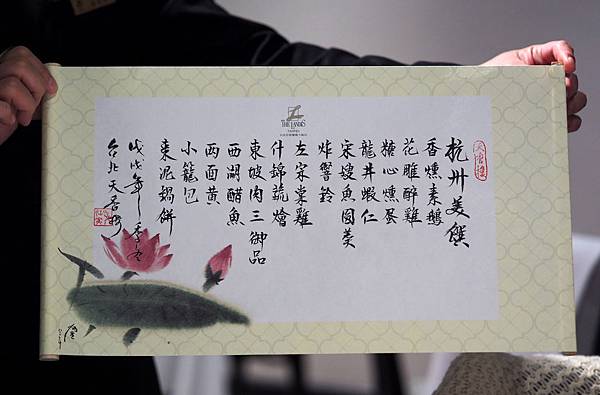 THE LANDIS
TAIPEI
天香樓
杭州美饌
香燻素鵝
花雕醉雞
糖心燻蛋
龍井蝦仁
宋嫂魚圓羹
炸響鈴
左宗棠雞
什錦蔬燴
東坡肉三御品
西湖醋魚
両面黃
小籠包
棗泥鍋餅
戊戌年季冬
台北天香樓